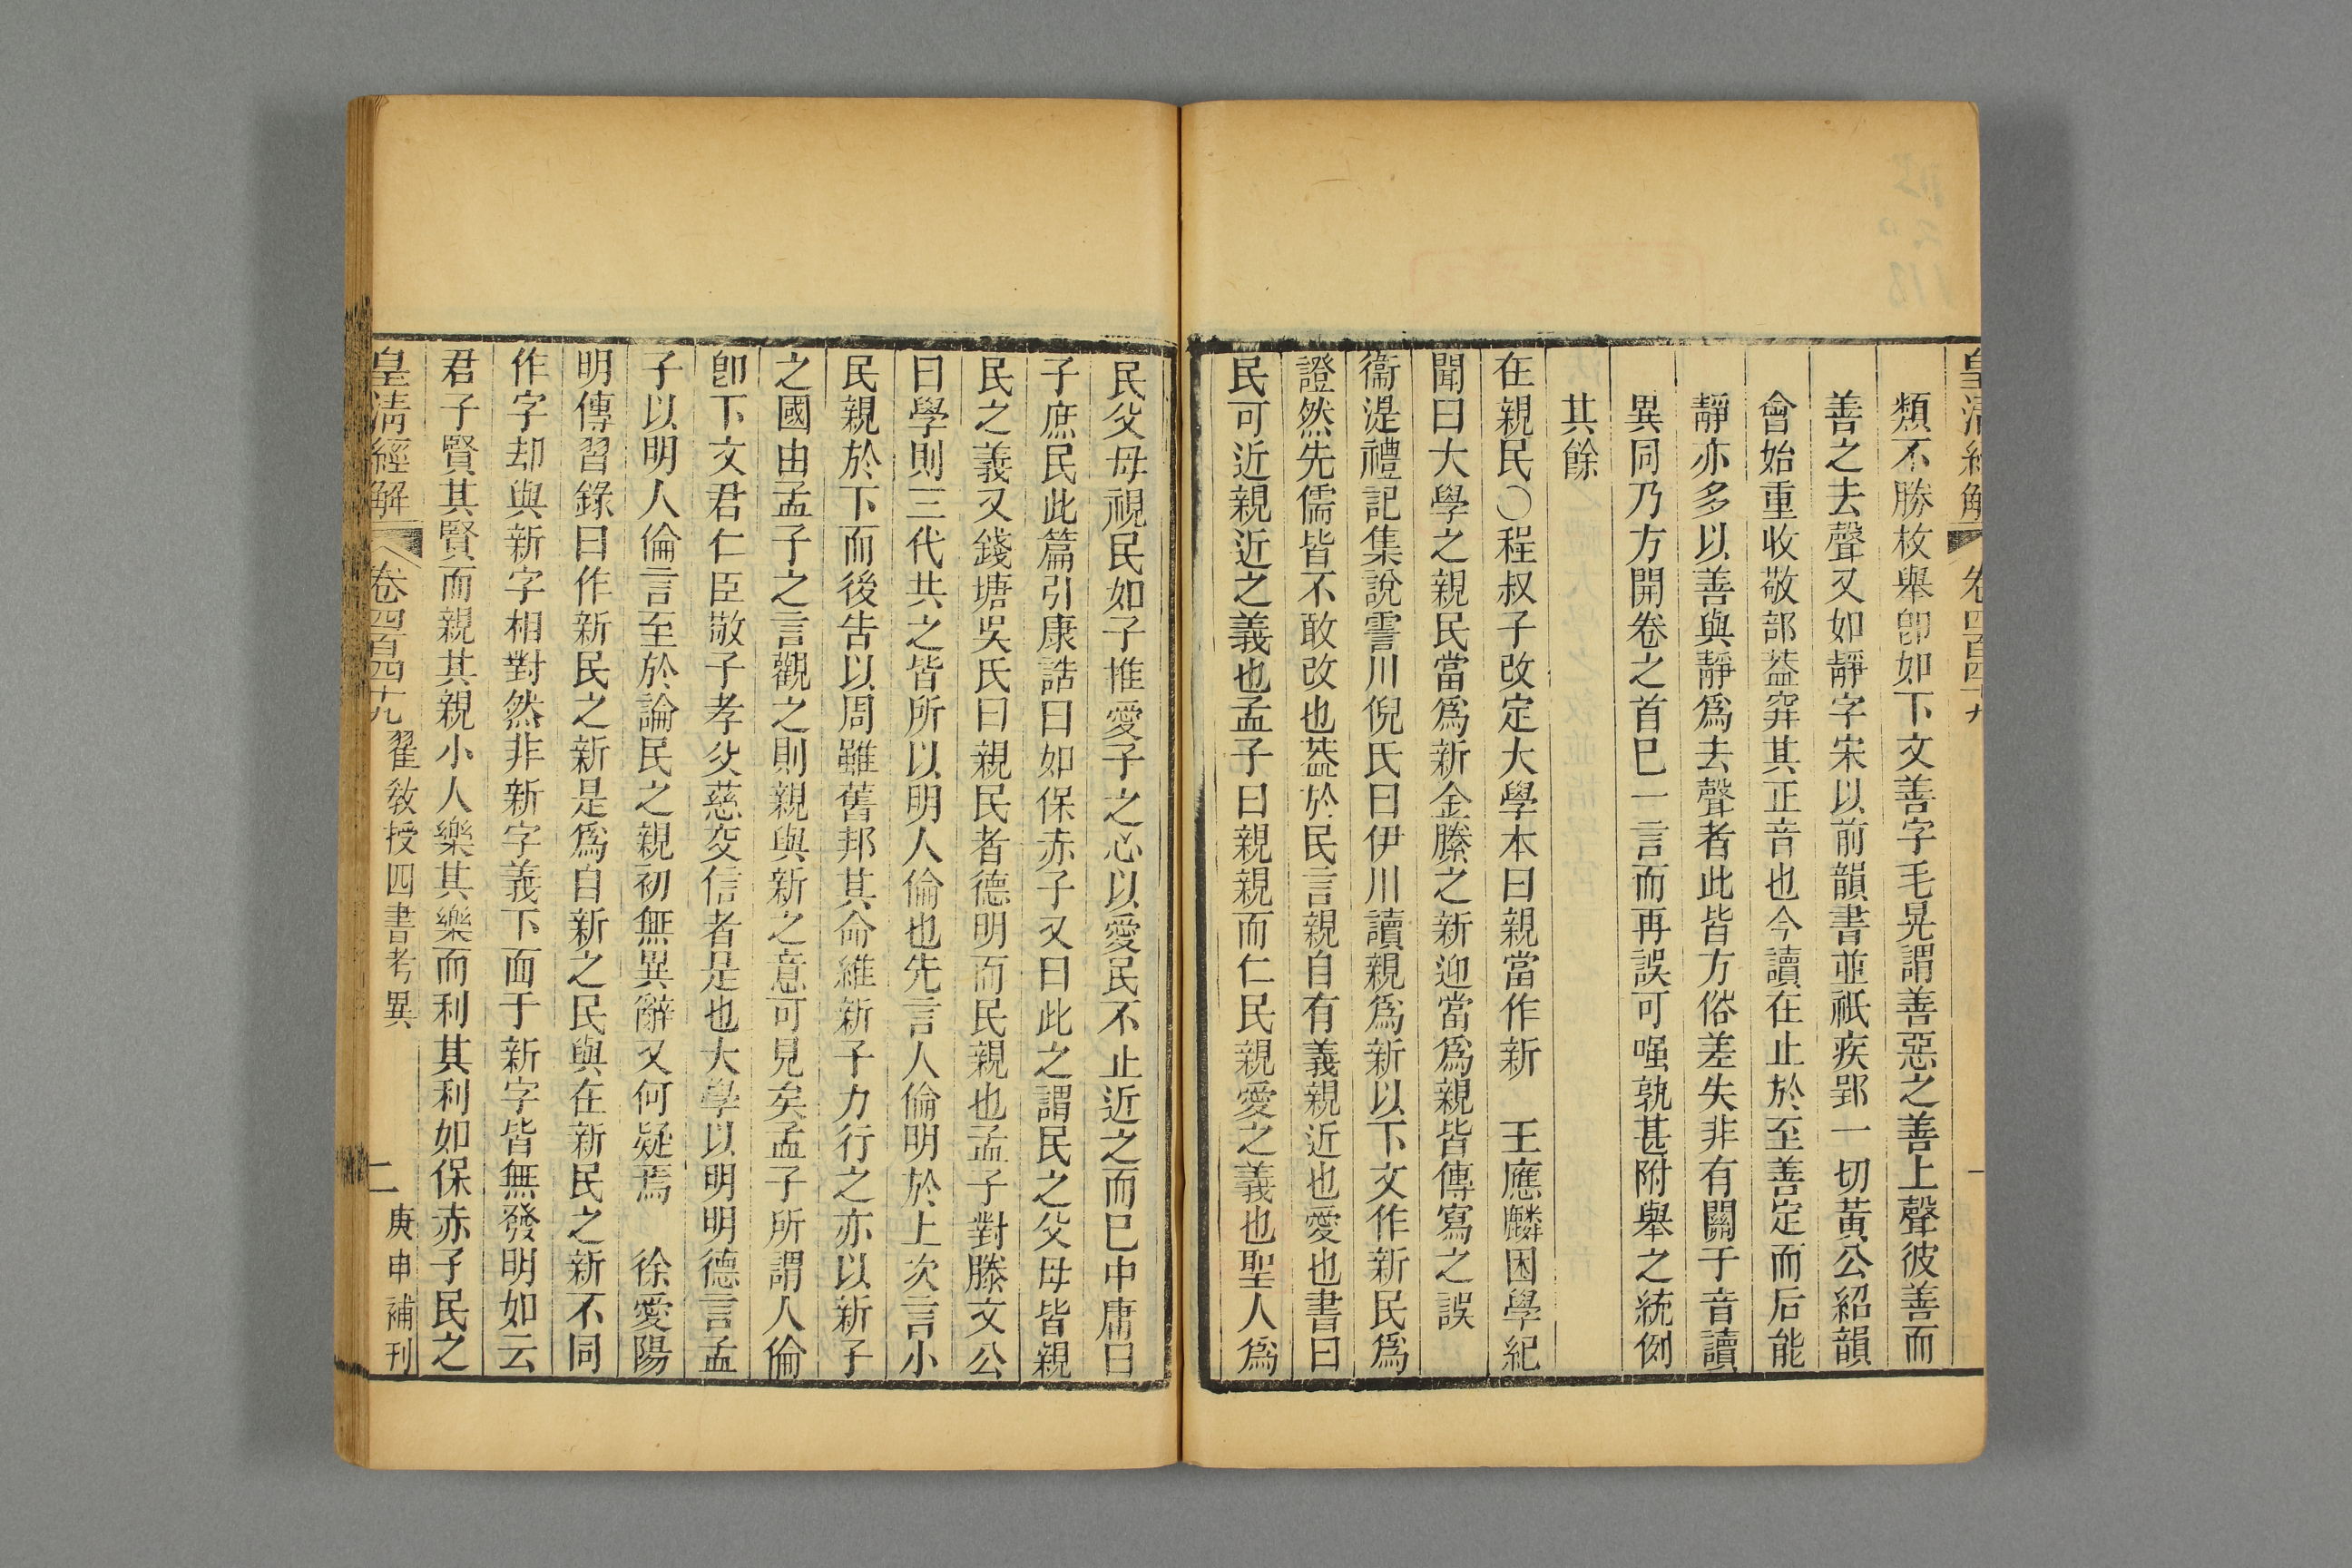 皇清經解 卷四百四十九 一
類不勝枚舉卽如下文善字毛晃謂善惡之善上聲彼善而
善之去聲又如靜字宋以前韻書並祇疾郢一切黃公紹韻
會始重收敬部葢窣其正音也今讀在止於至善定而后能
靜亦多以善與靜爲去聲者此皆方俗差失非有關于音讀
異同乃方開卷之首巳一言而再誤可嗤孰甚附舉之統例
其餘
在親民○程叔子改定大學本曰親當作新 王應麟困學紀
聞曰大學之親民當爲新金縢之新迎當爲親皆傳寫之誤
衞湜禮記集說霅川倪氏曰伊川讀親爲新以下文作新民爲
證然先儒皆不敢改也葢於民言親自有義親近也愛也書曰
民可近親近之義也孟子曰親親而仁民親愛之義也聖人爲
民父母視民如子推愛子之心以愛民不止近之而巳中庸曰
子庶民此篇引康誥曰如保赤子又曰此之謂民之父母皆親
民之義又錢塘吳氏曰親民者德明而民親也孟子對滕文公
曰學則三代共之皆所以明人倫也先言人倫明於上次言小
民親於下而後告以周雖舊邦其命維新子力行之亦以新子
之國由孟子之言觀之則親與新之意可見矣孟子所謂人倫
卽下文君仁臣敬子孝父慈交信者是也大學以明明德言孟
子以明人倫言至於論民之親初無異辭又何疑焉 徐愛陽
明傳習錄曰作新民之新是爲自新之民與在新民之新不同
作字却與新字相對然非新字義下面于新字皆無發明如云
君子賢其賢而親其親小人樂其樂而利其利如保赤子民之
皇淸經解 卷四百四十九 翟敎授四書考異 二 庚申補刊